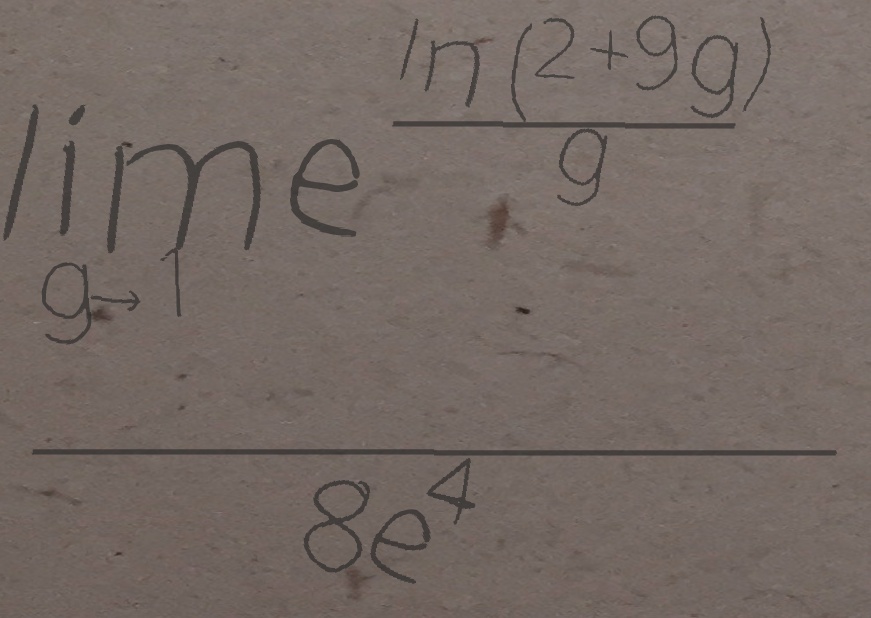 \frac{\lim_{g \to 1} e^{\frac{\ln(2+9g)}{g}}}{8e^4}